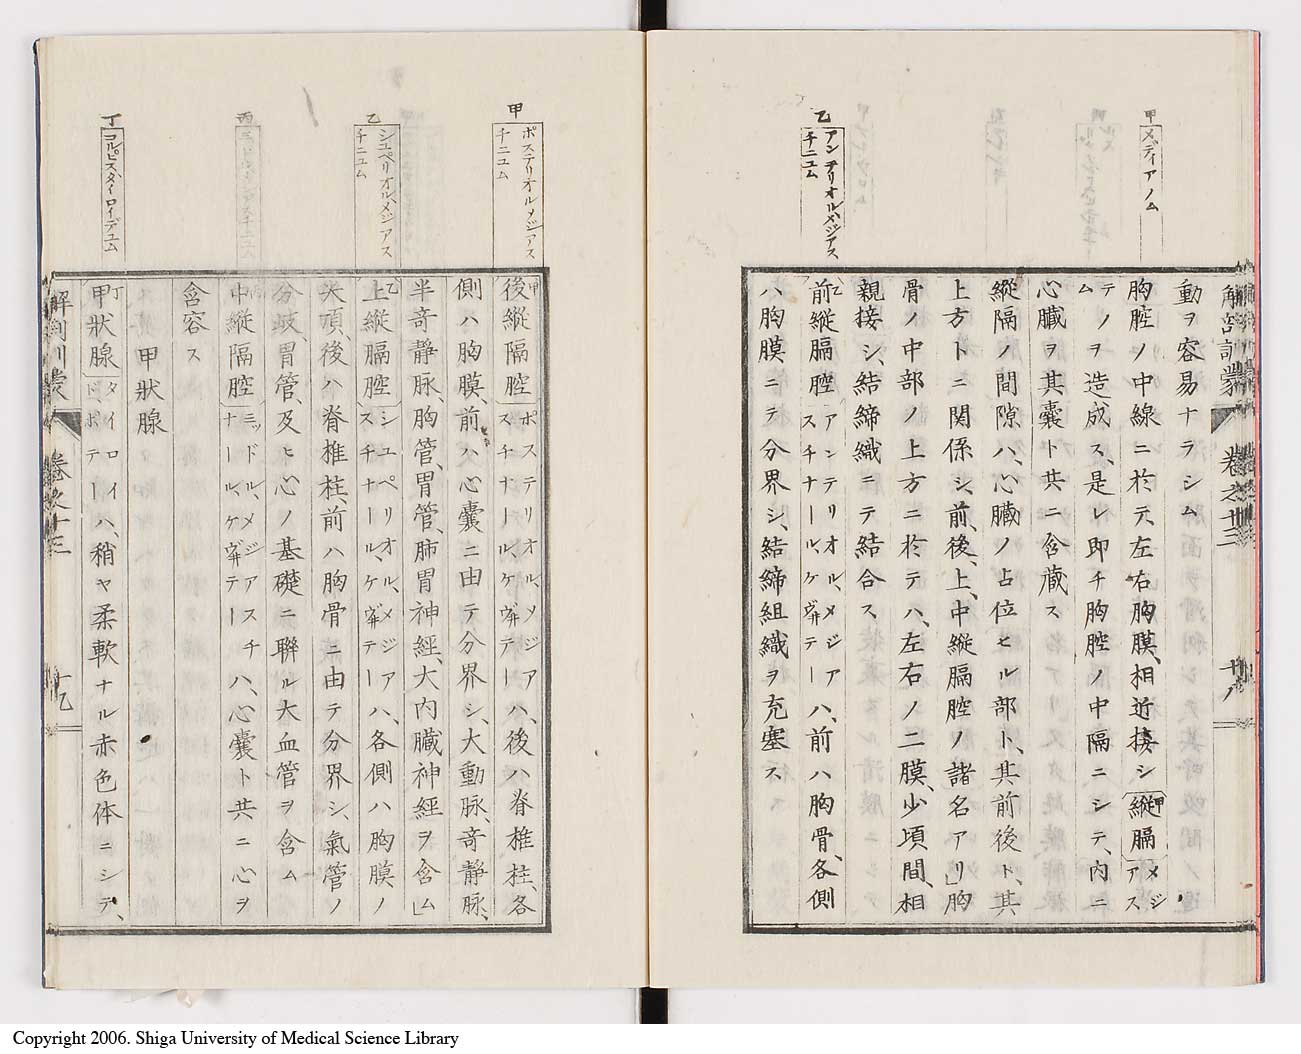 解剖訓蒙
巻之十三
十八
甲
メディアノム
乙
アンテリオルメジアス
チニユム
動ヲ容易ナラシム
胸腔ノ中線ニ於テ、左右胸膜、相近接シ縦膈メジアス
テノヲ造成ス、是レ即チ胸腔ノ中隔ニシテ、内ニ
心臓ヲ其囊ト共ニ含蔵ス
縦隔ノ間隙ハ、心臓ノ占位セル部ト、其前後ト、其
上方トニ関係シ、前、後、上、中縦膈腔ノ諸名アリ」胸
骨ノ中部ノ上方ニ於テハ、左右ノ二膜、少項間、相
親接シ、結締織ニテ結合ス
前縦膈腔アンテリオル、メジアスチナール、ケヴ井テーハ、前ハ胸骨、各側
ハ胸膜ニテ分界シ、結締組織ヲ充塞ス
甲
ポステリオルメジアス
チニユム
乙
シユペリオルメジアス
チニユム
丙
丁
コルピスダーロイデユム
後縦隔腔ポステリオル、メジアスチナール、ケヴ井テーハ、後ハ脊椎柱、各
側ハ胸膜、前ハ心囊ニ由テ分界シ、大動脉、奇静脉、
半奇静脉、胸管、胃管、肺胃神經、大内臓神經ヲ含ム」
上縦膈腔シユペリオル、メジアスチナール、ケヴ井テーハ、各側ハ胸膜ノ
尖頂、後ハ脊椎柱、前ハ胸骨ニ由テ分界シ、氣管ノ
分岐、胃管、及ヒ心ノ基礎ニ聯ル大血管ヲ含ム
中縦隔腔ミッドル、メジアスチナール、ケヴ井テーハ、心囊ト共ニ心ヲ
含容ス
甲狀腺
甲狀腺タイロイドボデーハ、稍ヤ柔軟ナル赤色体ニシテ、
解剖訓蒙
巻之十三
十九
Copyright 2006. Shiga University of Medical Science Library